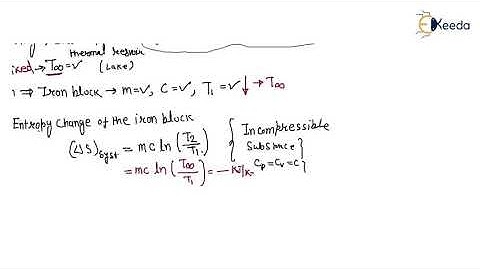 Ekeeda
thermal reservoir
ixed → T∞ = ✓ (Lake)
1 ⇒ Iron block → m=✓, C=✓, T₁ =✓ ↓ → T∞
Entropy Change of the iron block
(ΔS)syst = mc ln (T₂/T₁) { Incompressible
Substance }
= mc ln (T∞/T₁) = — KJ/K Cp = Cv = C }